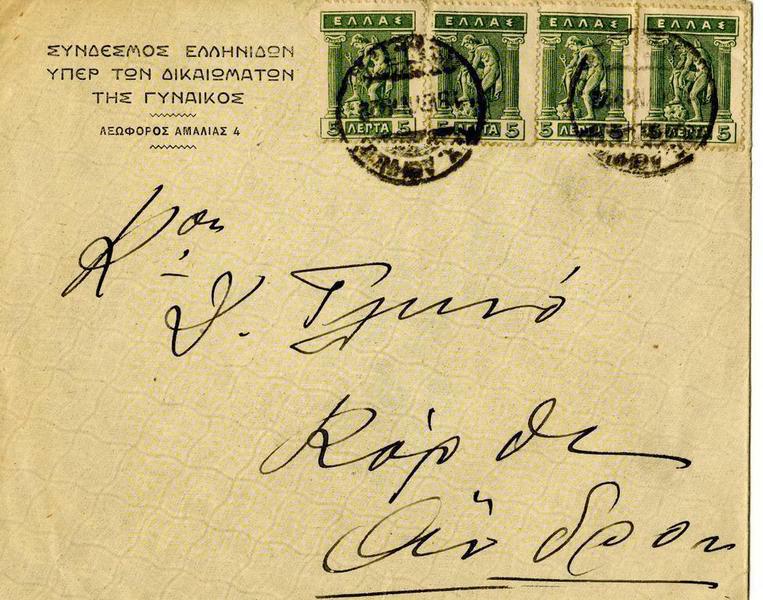 ΣΥΝΔΕΣΜΟΣ ΕΛΛΗΝΙΔΩΝ
ΥΠΕΡ ΤΩΝ ΔΙΚΑΙΩΜΑΤΩΝ
ΤΗΣ ΓΥΝΑΙΚΟΣ
ΛΕΩΦΟΡΟΣ ΑΜΑΛΙΑΣ 4
ΕΛΛΑΣ ΕΛΛΑΣ ΕΛΛΑΣ ΕΛΛΑΣ
5 ΛΕΠΤΑ 5 5 ΛΕΠΤΑ 5 5 ΛΕΠΤΑ 5 5 ΛΕΠΤΑ 5
Κον
Δ. Γληνό
Κόρθι
Άνδρου